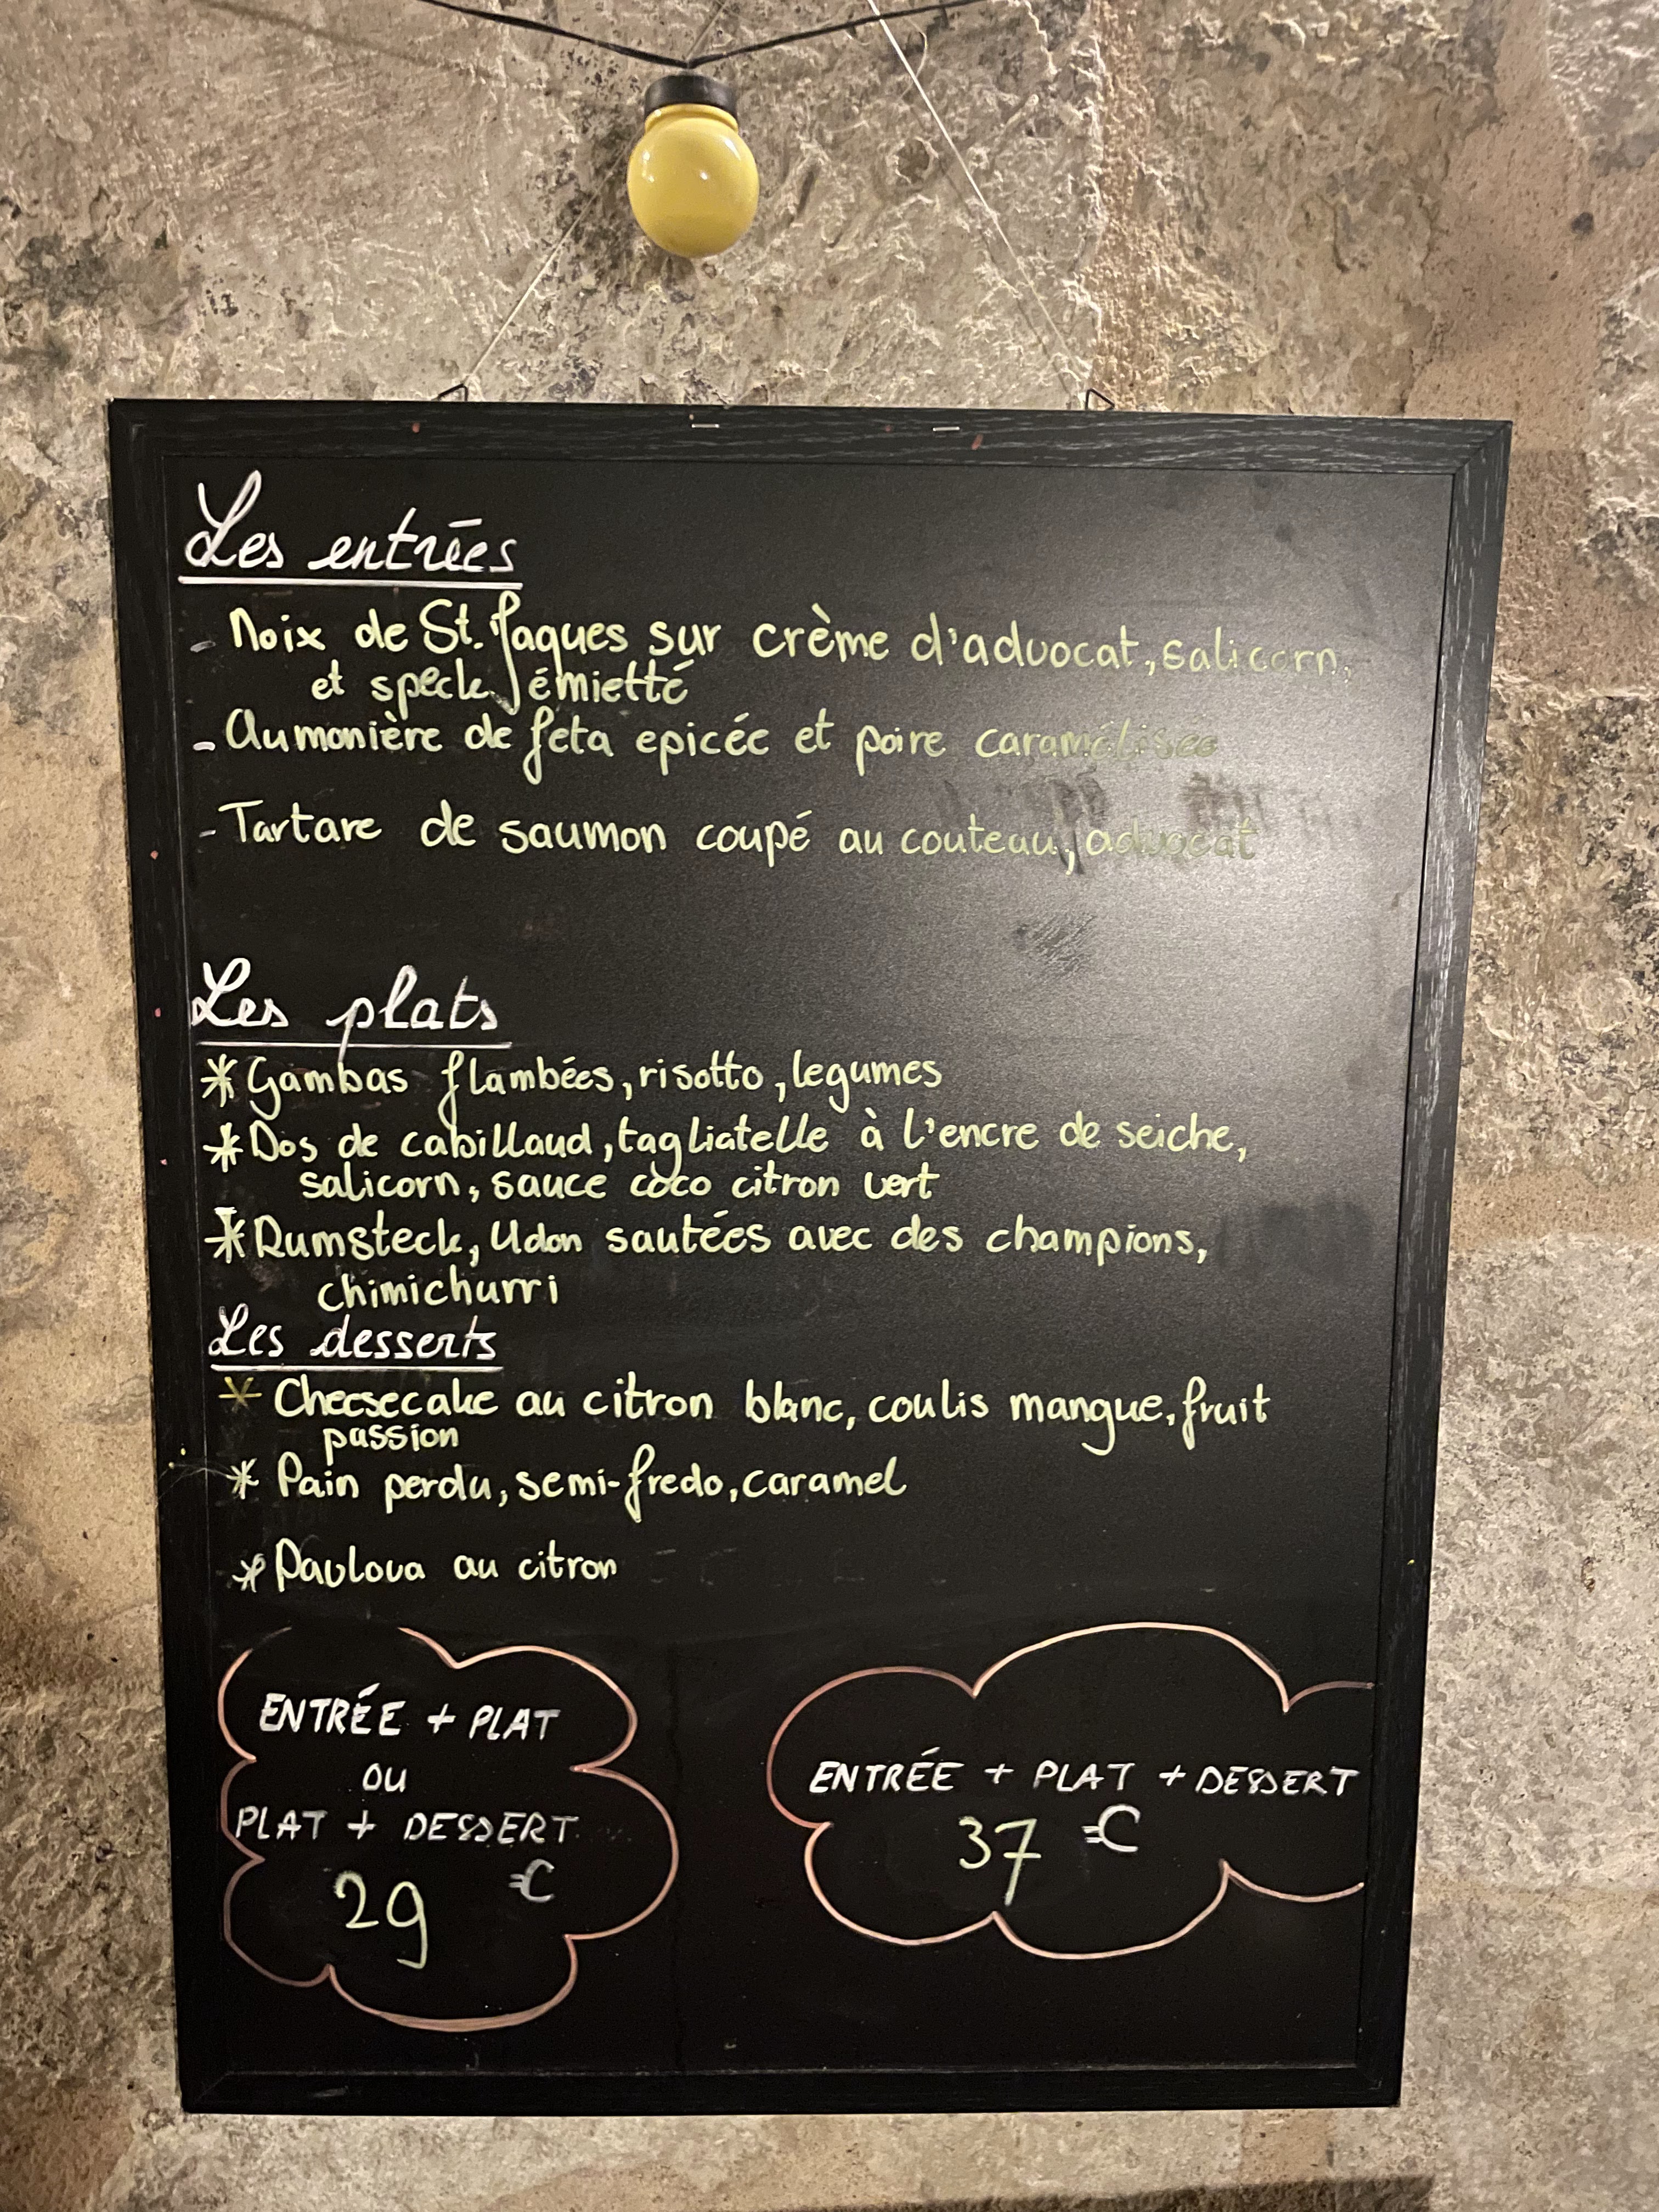 Les entrées
- Noix de St. Jaques sur crème d'advocat, salicorn,
et speck émietté
- Aumonière de feta epicée et poire caramélisée
- Tartare de saumon coupé au couteau, advocat
Les plats
* Gambas flambées, risotto, legumes
* Dos de cabillaud, tagliatelle à l'encre de seiche,
salicorn, sauce coco citron vert
* Rumsteck, Udon sautées avec des champions,
chimichurri
Les desserts
* Cheesecake au citron blanc, coulis mangue, fruit
passion
* Pain perdu, semi-fredo, caramel
* Pavlova au citron
ENTRÉE + PLAT
OU
PLAT + DESSERT
29 €
ENTRÉE + PLAT + DESSERT
37 €